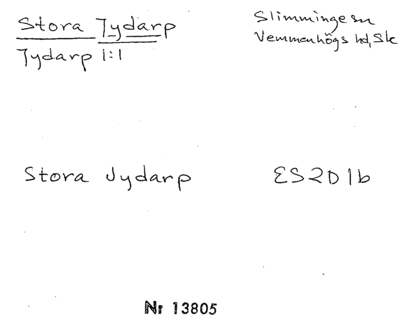 Stora Jydarp
Jydarp 1:1
Slimminge sn
Vemmenhögs hd, Sk
Stora Jydarp
ES2D1b
Nr 13805